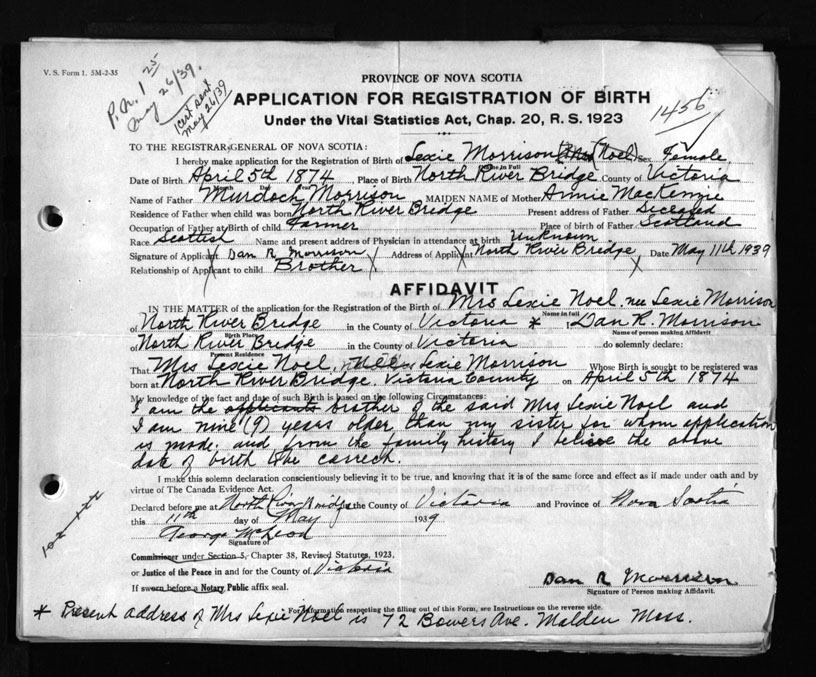 V. S. Form 1. 5M-2-35
P.N. 1 25
May 26/39.
Cert sent
May 26/39
PROVINCE OF NOVA SCOTIA
APPLICATION FOR REGISTRATION OF BIRTH
1456
Under the Vital Statistics Act, Chap. 20, R. S. 1923
TO THE REGISTRAR-GENERAL OF NOVA SCOTIA:
I hereby make application for the Registration of Birth of Lexie Morrison (Noel) Sex Female
Name in Full
Date of Birth April 5th 1874 Place of Birth North River Bridge County of Victoria
Month Day Year
Name of Father Murdoch Morrison MAIDEN NAME of Mother Annie MacKenzie
Residence of Father when child was born North River Bridge Present address of Father Deceased
Occupation of Father at Birth of child Farmer Place of birth of Father Scotland
Race Scottish Name and present address of Physician in attendance at birth Unknown
Signature of Applicant Dan R Morrison Address of Applicant North River Bridge Date May 11th 1939
Relationship of Applicant to child Brother
AFFIDAVIT
IN THE MATTER of the application for the Registration of the Birth of Mrs Lexie Noel, nee Lexie Morrison
Name in full
of North River Bridge in the County of Victoria * I Dan R. Morrison
Birth Place Name of person making Affidavit
of North River Bridge in the County of Victoria do solemnly declare:
Present Residence
That Mrs Lexie Noel, nee Lexie Morrison Whose Birth is sought to be registered was
born at North River Bridge. Victoria County on April 5th 1874
My knowledge of the fact and date of such Birth is based on the following Circumstances:
I am the applicants brother of the said Mrs Lexie Noel and
I am nine (9) years older than my sister for whom application
is made. and from the family history I believe the above
date of birth to be correct.
I make this solemn declaration conscientiously believing it to be true, and knowing that it is of the same force and effect as if made under oath and by
virtue of The Canada Evidence Act.
Declared before me at North River Bridge in the County of Victoria and Province of Nova Scotia
this 11th day of May 1939
George McLeod
Signature of
Commissioner under Section 5, Chapter 38, Revised Statutes, 1923,
or Justice of the Peace in and for the County of Victoria
If sworn before a Notary Public affix seal.
Dan R Morrison
Signature of Person making Affidavit.
For information respecting the filling out of this Form, see Instructions on the reverse side.
* Present address of Mrs Lexie Noel is 72 Bowers Ave. Malden Mass.